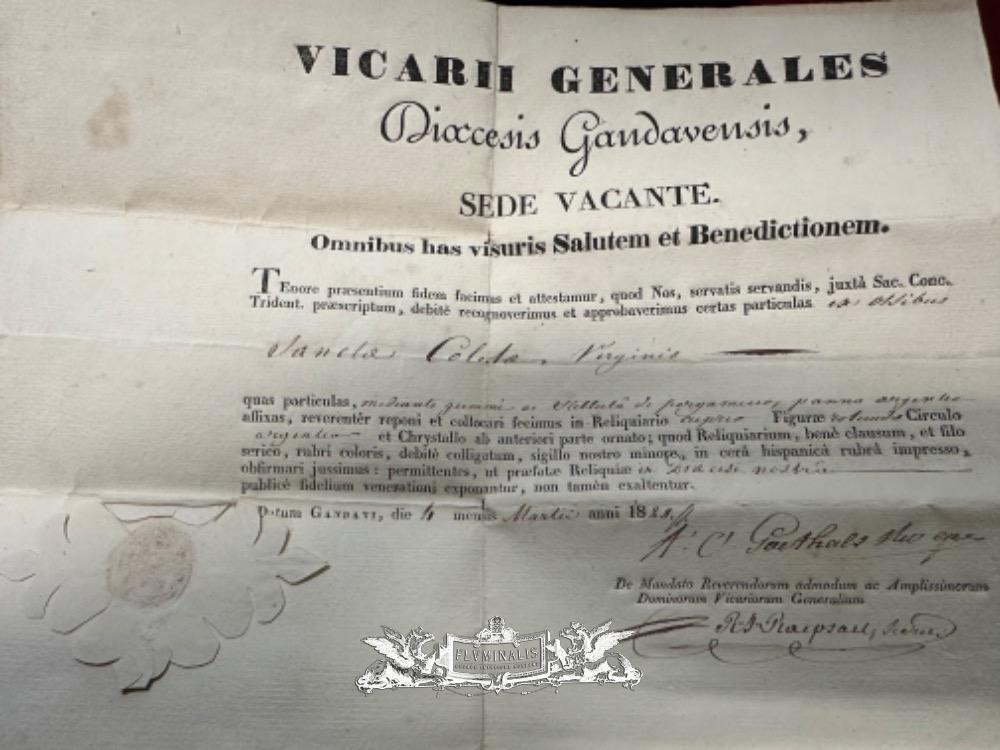 VICARII GENERALES
Diœcesis Gandavensis,
SEDE VACANTE.
Omnibus has visuris Salutem et Benedictionem.
TEnore præsentium fidem facimus et attestamur, quod Nos, servatis servandis, juxtà Sac. Conc.
Trident. præscriptum, debitè recognoverimus et approbaverimus certas particulas ex ossibus
Sanctæ Coletæ Virginis
quas particulas, mediante gummi ac de pergameno, panno argenteo
affixas, reverentèr reponi et collocari fecimus in Reliquiario cupreo Figuræ rotundæ Circulo
argenteo et Chrystallo ab anteriori parte ornato; quod Reliquiarium, benè clausum, et filo
serico, rubri coloris, debitè colligatum, sigillo nostro minore, in cerâ hispanicâ rubrâ impresso,
obfirmari jussimus: permittentes, ut præfatæ Reliquiæ in Diœcesi nostrâ
publicè fidelium venerationi exponantur, non tamèn exaltentur.
Datum GANDAVI, die 4 mensis Martii anni 18
Goethals
De Mandato Reverendorum admodum ac Amplissimorum
Dominorum Vicariorum Generalium
Raepsaet,
FLVMINALIS